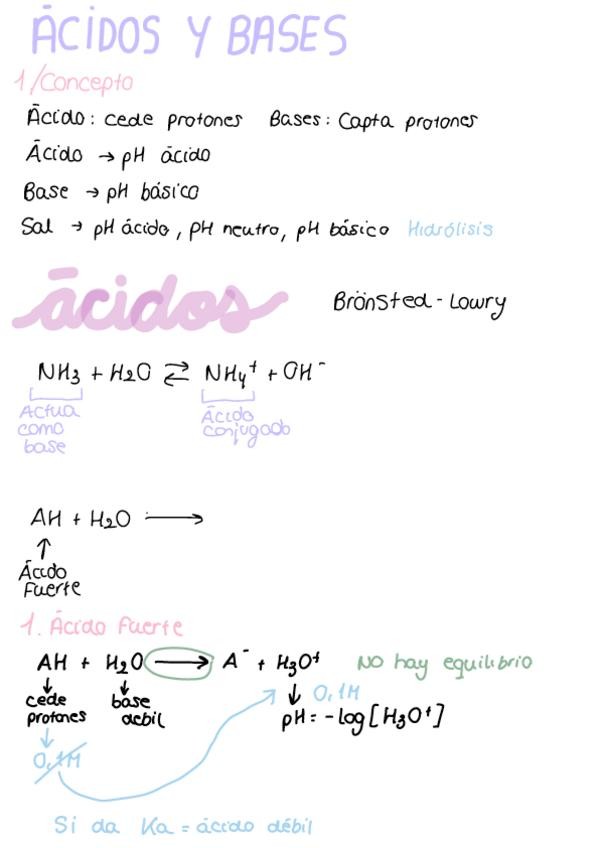 ĀCIDOS Y BASES
1/Concepto
Ācido: cede protones Bases: Capta protones
Ācido → pH ácido
Base → pH básico
Sal → pH ácido, pH neutro, pH básico Hidrólisis
ācidos Brönsted-Lowry
NH3 + H2O ⇄ NH4+ + OH-
Actua como base Ācido conjugado
AH + H2O ⟶
↑
Ācido
Fuerte
1. Ācido Fuerte
AH + H2O ⟶ A- + H3O+ NO hay equilibrio
↓ ↓ ↓ 0,1M
cede protones base debil pH = -log[H3O+]
↓
0,1M
Si da Ka = ácido débil